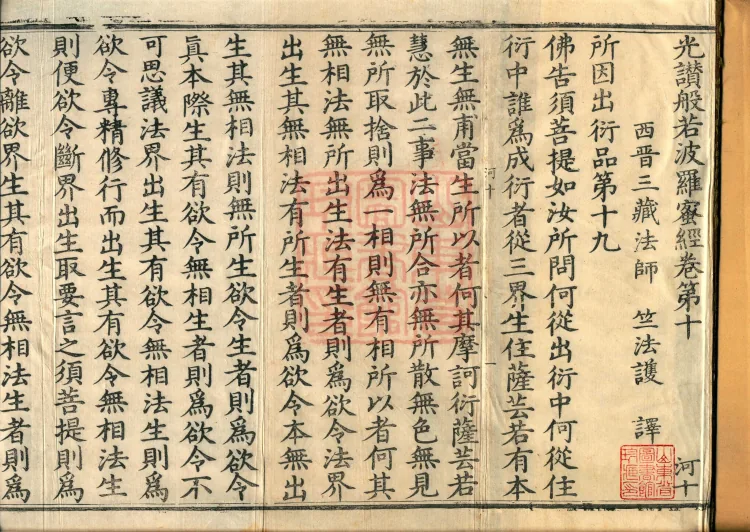 光讚般若波羅蜜經卷第十　河十
西晋三藏法師　竺法護　譯
所因出衍品第十九
佛告須菩提如汝所問何從出衍中何從住
衍中誰爲成衍者從三界生住薩芸若有本
河十　一
無生無甫當生所以者何其摩訶衍薩芸若
慧於此二事法無所合亦無所散無色無見
無所取捨則爲一相則無有相所以者何其
無相法無所出生法有生者則爲欲令法界
出生其無相法有所生者則爲欲令本無出
生其無相法則無所生欲令生者則爲欲令
眞本際生其有欲令無相生者則爲欲令不
可思議法界出生其有欲令無相法生則爲
欲令專精修行而出生其有欲令無相法生
則便欲令斷界出生取要言之須菩提則爲
欲令離欲界生其有欲令無相法生者則爲